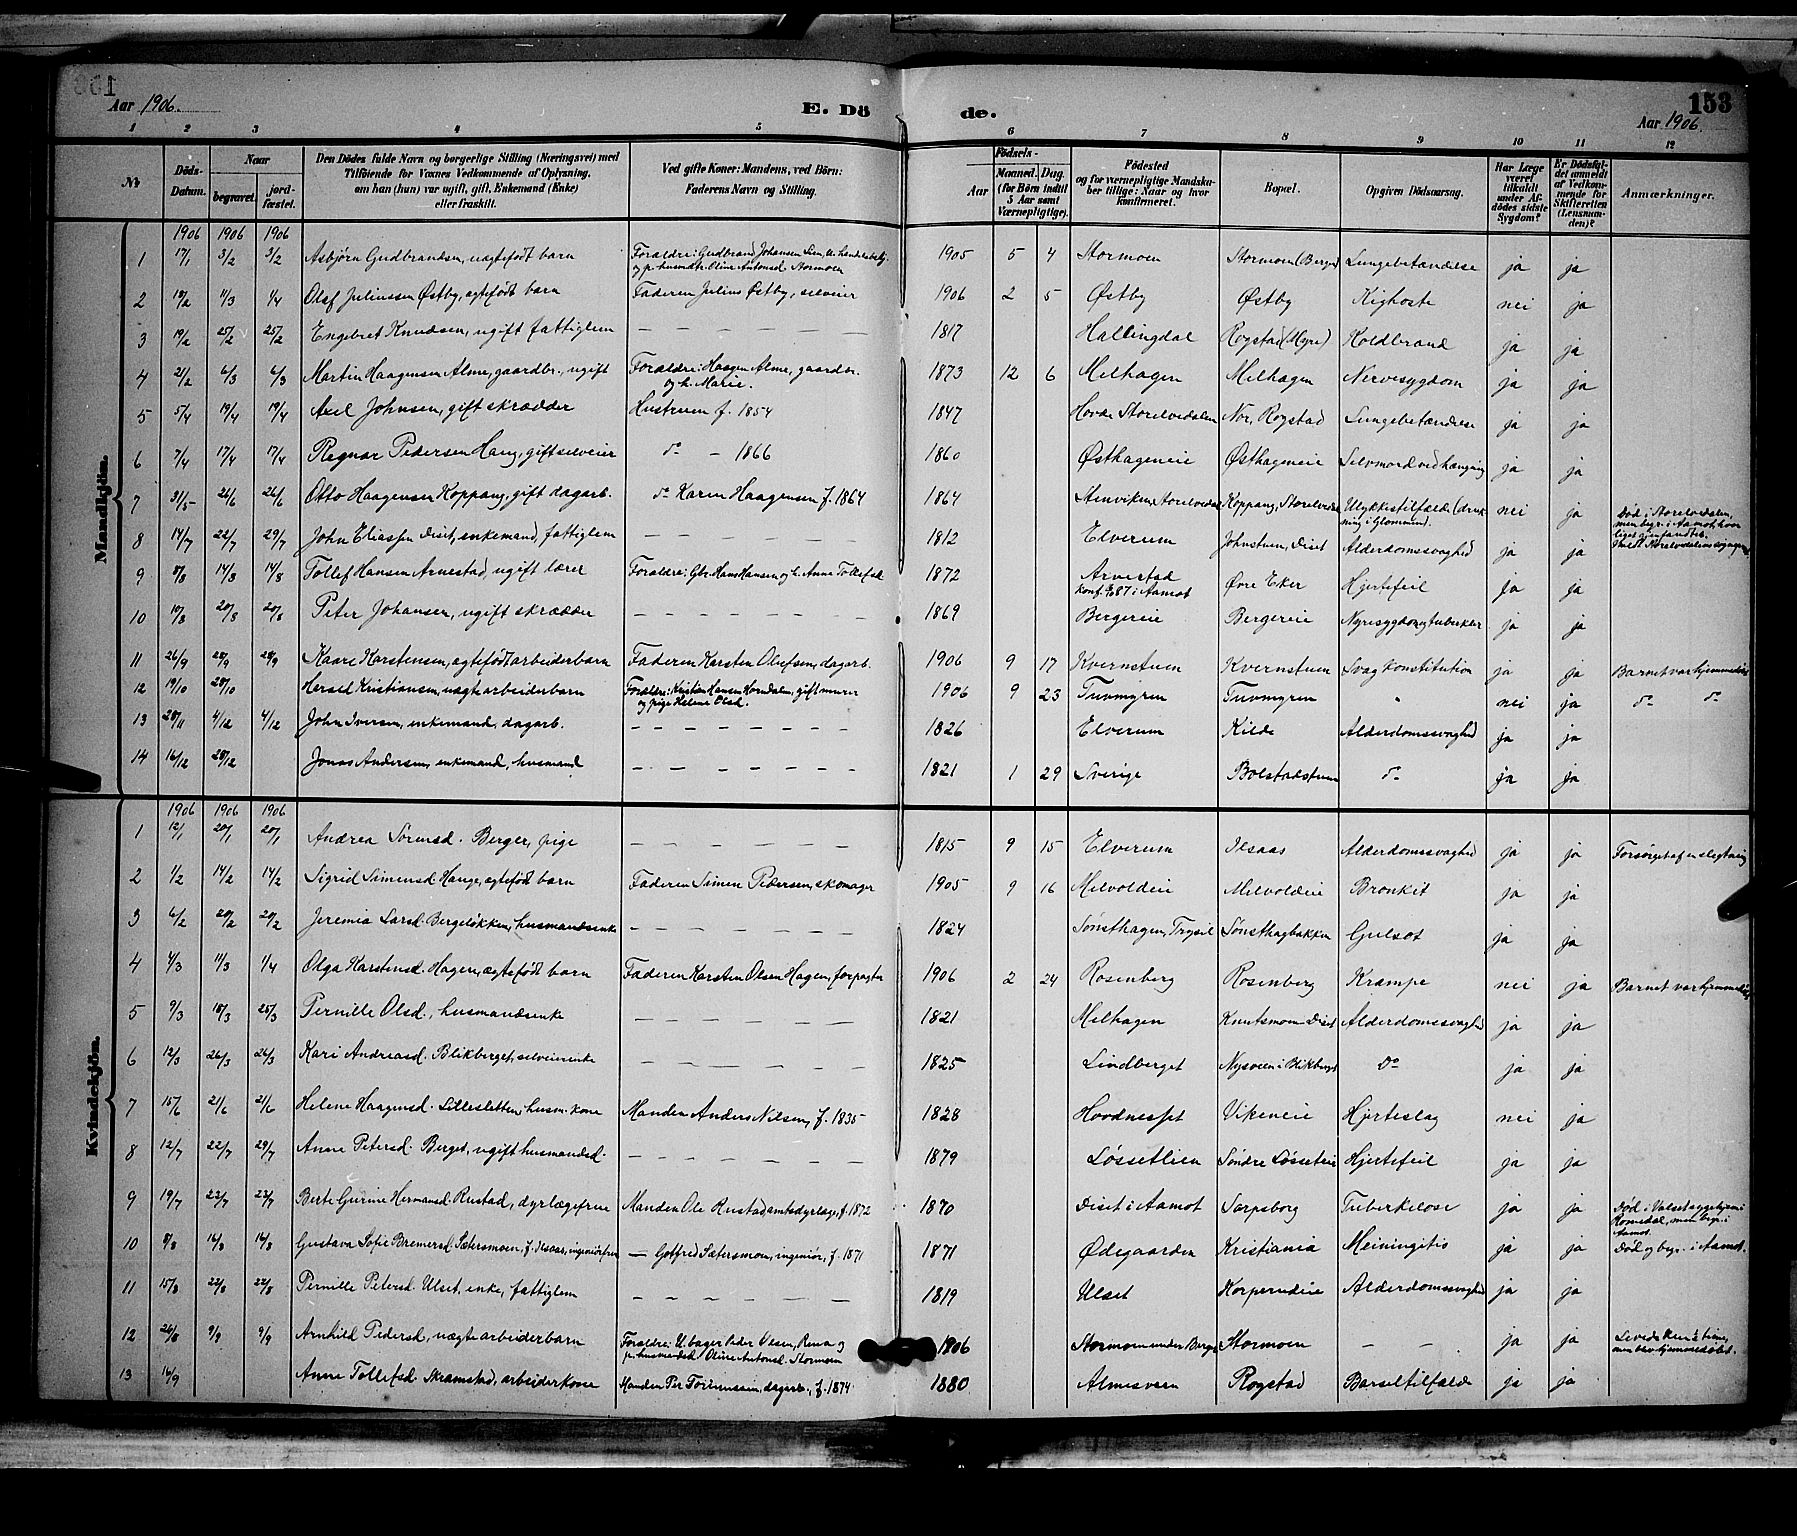 153
Aar 1906.
E. Döde.
Aar 1906.
1 2 3 4 5 6 7 8 9 10 11 12
№
Döds-Datum.
Naar
begravet.
jordfæstet.
Den Dödes fulde Navn og borgerlige Stilling (Næringsvei) med Tilföiende for Voxnes Vedkommende af Oplysning, om han (hun) var ugift, gift, Enkemand (Enke) eller fraskilt.
Ved gifte Koner: Mandens, ved Börn: Faderens Navn og Stilling.
Födsels-
Aar
Maaned. Dag.
(for Börn indtil 5 Aar samt Værnepligtige).
Födested og for værnepligtige Mandskaber tillige: Naar og hvor konfirmeret.
Bopæl.
Opgiven Dödsaarsag.
Har Læge været tilkaldt under Afdödes sidste Sygdom?
Er Dödsfaldet anmeldt af Vedkommende for Skifteretten (Lensmanden)?
Anmærkninger.
Mandkjön.
1906 1906 1906
1 17/1 3/2 3/2 Asbjörn Gudbrandsen, uægtefödt barn Forældre: Gudbrand Johansen Lien, u. handelsbetj. og p. husmdtr. Oline Antonsd. Stormoen 1905 5 4 Stormoen Stormoen (Berger) Lungebetændelse ja ja
2 10/2 11/3 1/4 Olaf Juliussen Østby, ægtefödt barn Faderen Julius Østby, selveier 1906 2 5 Østby Østby Kighoste nei ja
3 19/2 25/2 25/2 Engebret Knudsen, ugift fattiglem — — — — — — 1817 Hallingdal Rogstad (Myre) Koldbrand ja ja
4 21/2 6/3 6/3 Martin Haagensen Alme, gaardbr., ugift Forældre: Haagen Alme, gaardbr. og h. Marie. 1873 12 6 Melhagen Melhagen Nervesygdom ja ja
5 5/4 19/4 19/4 Axel Johnsen, gift skrædder Hustruen f. 1854 1847 Hovde Storelvedalen Nor. Rogstad Lungebetændelse ja ja
6 7/4 17/4 17/4 Ragnar Pedersen Haug, gift selveier do — 1866 1860 Østhageneie Østhageneie Selvmord ved hængning ja ja
7 31/5 26/6 26/6 Otto Haagensen Koppang, gift dagarb. do Karen Haagensen f. 1864 1864 Storelvedal Koppang, Storelvedal Ulykkestilfælde (drukning i Glommen). nei ja Död i Storelvedalen, men begr. i Aamot
8 14/7 22/7 29/7 John Eliassen Diset, enkemand, fattiglem — — — — — — 1812 Elverum Johnstuen, Diset Alderdomssvaghed ja ja
9 8/8 14/8 14/8 Tollef Hansen Arnestad, ugift lærer Forældre: Gbr. Hans Hansen og h. Anne Tollefsd. 1872 Arnestad konf. 87 i Aamot Øvre Eker Hjertefeil ja ja
10 10/8 20/8 20/8 Peter Johansen, ugift skrædder — — — — — — 1869 Bergereie Bergereie Nyresygdom og tuberkler ja ja
11 26/9 28/9 28/9 Kaare Karstensen, ægtefödt arbeiderbarn Faderen Karsten Olufsen, dagarb. 1906 9 17 Kvernstuen Kvernstuen Svag konstitution ja ja Barnet var hjemmedöbt
12 19/10 28/10 Kristiansen, uægte arbeiderbarn Forældre: Kristian Hansen Horndalen, gift murer og pige Helene Olsd. 1906 9 23 Tuvmyren Tuvmyren " nei ja do do
13 28/11 4/12 4/12 John Iversen, enkemand, dagarb. — — — — — — 1826 Elverum Kilde Alderdomssvaghed ja ja
14 16/12 28/12 Jonas Andersen, enkemand, husmand — — — — — — 1821 1 29 Sverige Bolstadstuen do ja ja
Kvindekjön.
1906 1906 1906
1 12/1 20/1 20/1 Andrea Sørensd. Berger, pige — — — — — — 1815 9 15 Elverum Ilsaas Alderdomssvaghed ja ja Forsørget af en slegtning
2 1/2 14/2 14/2 Sigrid Simensd. Hauge, ægtefödt barn Faderen Simen Pedersen, skomager 1905 9 16 Melvoldeie Melvoldeie Bronkit ja ja
3 6/2 20/2 20/2 Jeremia Larsd. Bergeløkken, husmandsenke — — — — — — 1824 Sønsthagen, Trysil Sønsthagbakken Gulsot ja ja
4 4/3 11/3 1/4 Olga Karstensd. Hagen, ægtefödt barn Faderen Karsten Olsen Hagen, forpagter 1906 2 24 Rosenberg Rosenberg Krampe nei ja Barnet var hjemmedöbt
5 9/3 18/3 25/3 Pernille Olsd., husmandsenke — — — — — — 1821 Melhagen Knutsmoen Diset Alderdomssvaghed ja ja
6 12/3 26/3 26/3 Kari Andreasd. Blikberget, selveierenke — — — — — — 1825 Lindberget Nysveen i Blikberget Do ja ja
7 15/6 21/6 21/6 Helene Haagensd. Lillesletten, husm. kone Manden Anders Nilsen, f. 1835 1828 Hovdnesset Vikeneie Hjerteslag nei ja
8 12/7 22/7 29/7 Anne Petersd. Berget, ugift husmandsd. — — — — — — 1879 Løssetlien Søndre Løsseteie Hjertefeil ja ja
9 19/7 23/7 23/7 Berte Gurine Hermansd. Rustad, dyrlægefrue Manden Ole Rustad, amtsdyrlæge, f. 1872 1870 Diset i Aamot Sarpsborg Tuberkulose ja ja Död i Romedal, men begr. i Aamot
10 8/8 16/8 16/8 Gustava Sofie Bremersd. Sætersmoen, f. Ilsaas, ingeniørfrue — Gotfred Sætersmoen, ingeniør, f. 1871 1871 Ødegaarden Kristiania Meiningitis ja ja Död og begr. i Aamot.
11 15/8 22/8 22/8 Pernille Petersd. Ulset, enke, fattiglem — — — — — — 1819 Ulset Korpereideie Alderdomssvaghed ja ja
12 26/8 9/9 9/9 Arnhild Pedersd., uægte arbeiderbarn Forældre: U. bager Peder Olsen, Rena og p. husmandsd. Oline Antonsd. Stormoen 1906 Stormoen under Berger Stormoen — — ja ja Levede kun time, men blev hjemmedöbt.
13 16/9 Anne Tollefsd. Skramstad, arbeiderkone Manden Per dagarb., f. 1874 1880 Almesveen Rogstad Barseltilfælde ja ja